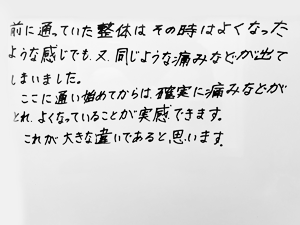 前に通っていた整体はその時はよくなった
ような感じでも、又、同じような痛みなどが出て
しまいました。
ここに通い始めてからは、確実に痛みなどが
とれ、よくなっていることが実感できます。
これが大きな違いであると、思います。